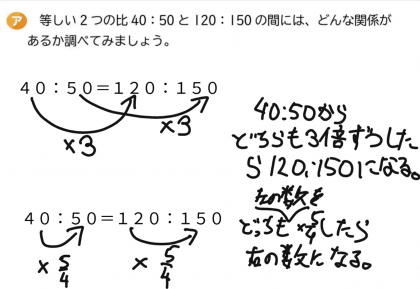 ア 等しい2つの比40：50と120：150の間には、どんな関係が
あるか調べてみましょう。
40：50＝120：150
×3 ×3
40:50から
どちらも3倍ずつした
ら120:150になる。
40：50＝120：150
×5/4 ×5/4
左の数を
どっちも×5/4したら
右の数になる。